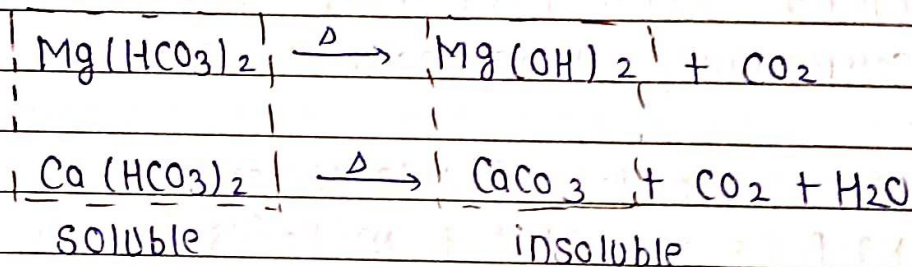 Mg(HCO3)2 Δ→ Mg(OH)2 + CO2
Ca(HCO3)2 Δ→ CaCO3 + CO2 + H2O
soluble insoluble